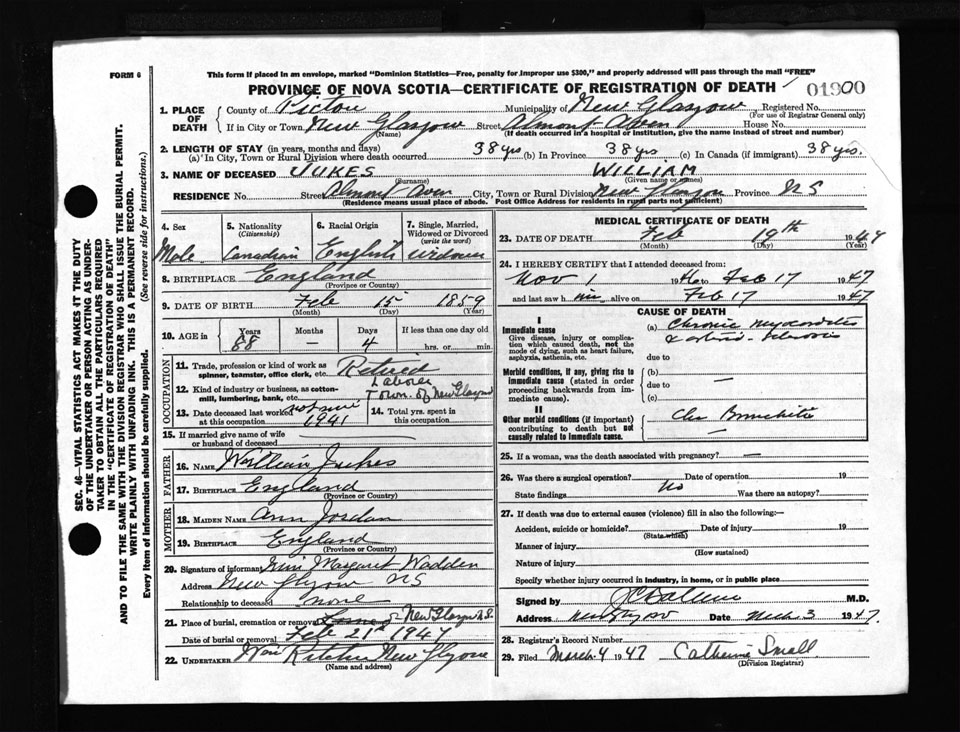 FORM 6
This form if placed in an envelope, marked "Dominion Statistics—Free, penalty for improper use $300," and properly addressed will pass through the mail "FREE"
PROVINCE OF NOVA SCOTIA—CERTIFICATE OF REGISTRATION OF DEATH
01900
1. PLACE OF DEATH
County of Pictou Municipality of New Glasgow Registered No.
(For use of Registrar General only)
If in City or Town New Glasgow Street Almont Aven House No.
(Name) (If death occurred in a hospital or institution, give the name instead of street and number)
2. LENGTH OF STAY (in years, months and days)
(a) In City, Town or Rural Division where death occurred 38 yrs (b) In Province 38 yrs (c) In Canada (if immigrant) 38 yrs.
3. NAME OF DECEASED JUKES WILLIAM
(Surname) (Given name or names)
RESIDENCE No. Street Almont Aven City, Town or Rural Division New Glasgow Province NS
(Residence means usual place of abode. Post Office Address for residents in rural parts not sufficient)
4. Sex
Male
5. Nationality
(Citizenship)
Canadian
6. Racial Origin
English
7. Single, Married, Widowed or Divorced
(write the word)
Widower
8. BIRTHPLACE England
(Province or Country)
9. DATE OF BIRTH Feb 15 1859
(Month) (Day) (Year)
10. AGE in Years Months Days If less than one day old
88 — 4 hrs. or min
OCCUPATION
11. Trade, profession or kind of work as spinner, teamster, office clerk, etc. Retired
12. Kind of industry or business, as cotton-mill, lumbering, bank, etc. Laborer Town of New Glasgow
13. Date deceased last worked at this occupation 1941
14. Total yrs. spent in this occupation
15. If married give name of wife or husband of deceased
FATHER
16. NAME William Jukes
17. BIRTHPLACE England
(Province or Country)
MOTHER
18. MAIDEN NAME Ann Jordan
19. BIRTHPLACE England
(Province or Country)
20. Signature of informant Margaret Wadden
Address New Glasgow NS
Relationship to deceased none
21. Place of burial, cremation or removal New Glasgow N.S.
Date of burial or removal Feb 21st 1947
22. UNDERTAKER New Glasgow
(Name and address)
MEDICAL CERTIFICATE OF DEATH
23. DATE OF DEATH Feb 19th 1947
(Month) (Day) (Year)
24. I HEREBY CERTIFY that I attended deceased from:
Nov 1 1946 to Feb 17 1947
and last saw him alive on Feb 17 1947
CAUSE OF DEATH
I
Immediate cause
Give disease, injury or complication which caused death, not the mode of dying, such as heart failure, asphyxia, asthenia, etc.
(a) Chronic myocarditis
due to
Morbid conditions, if any, giving rise to immediate cause (stated in order proceeding backwards from immediate cause).
(b) —
due to
(c)
II
Other morbid conditions (if important) contributing to death but not causally related to immediate cause.
Chr Bronchitis
—
25. If a woman, was the death associated with pregnancy? —
26. Was there a surgical operation? Date of operation 19
State findings No Was there an autopsy?
27. If death was due to external causes (violence) fill in also the following:—
Accident, suicide or homicide? Date of injury 19
(State which)
Manner of injury
(How sustained)
Nature of injury
Specify whether injury occurred in industry, in home, or in public place
Signed by M.D.
Address New Glasgow Date Mch 3 1947
28. Registrar's Record Number
29. Filed March 4 1947 Catherine Small
(Division Registrar)
SEC. 46—VITAL STATISTICS ACT MAKES IT THE DUTY
OF THE UNDERTAKER OR PERSON ACTING AS UNDER-
TAKER TO OBTAIN ALL THE PARTICULARS REQUIRED
IN THE "CERTIFICATE OF REGISTRATION OF DEATH"
AND TO FILE THE SAME WITH THE DIVISION REGISTRAR WHO SHALL ISSUE THE BURIAL PERMIT.
WRITE PLAINLY WITH UNFADING INK. THIS IS A PERMANENT RECORD.
Every item of information should be carefully supplied. (See reverse side for instructions.)